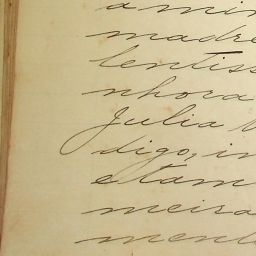 a min
madre
lentiss
nhora
Julia
digo, in
e tam
meira
mente